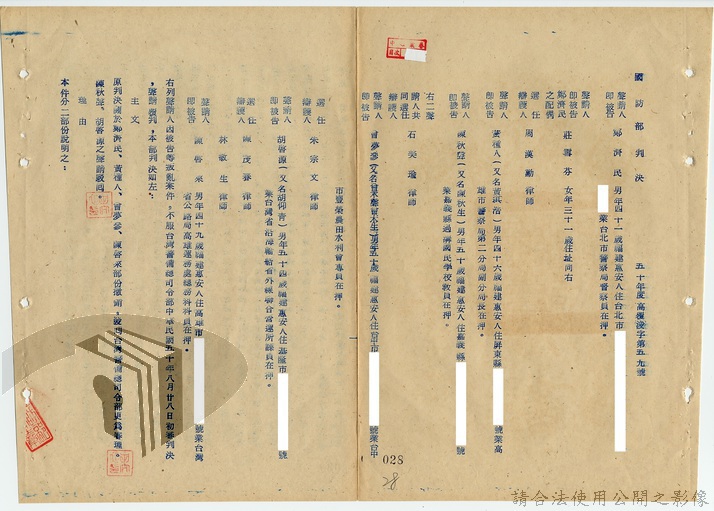 國防部判決
五十年度高覆淩字第五九號
聲請人
即被告
鄭濟民 男年四十一歲福建惠安人住台北市
業台北市警察局督察員在押。
聲請人
即被告
鄭濟民
之配偶
莊雪芬 女年三十一歲住址同右
選任
辯護人
周漢勳律師
聲請人
即被告
黃種人(又名黃 浩)男年四十六歲福建惠安人住屏東縣 號業高
雄市警察局第二分局副分局長在押。
聲請人
即被告
陳秋 (又名陳秋生)男年五十歲福建惠安人住嘉義縣 號
業嘉義縣過溝國民學校教員在押。
右二聲
請人共
同選任
辯護人
石美瑜律師
聲請人
即被告
曾夢參(又名 )男年五十歲福建惠安人住台中市 號業台中
市豐榮農田水利會專員在押。
選任
辯護人
朱宗文律師
聲請人
即被告
胡啓源(又名胡仰青)男年五十四歲福建惠安人住基隆市 號
業台灣省沿海輪船省外線聯合營運所課員在押。
選任
辯護人
陳茂榛律師
林敏生律師
聲請人
即被告
陳啓來 男年四十九歲福建惠安人住高雄市 號業台灣
省公路局高雄運務處總務科科員在押。
右列聲請人因被告等叛亂案件,不服台灣警備總司令部中華民國五十年八月廿八日初審判決
,聲請覆判,本部判決如左:
主文
原判決關於鄭濟民、黃種人、曾夢參、陳啓來部份撤銷,發回台灣警備總司令部更爲審理。
陳秋 、胡啓源之聲請駁回。
理由
本件分二部份說明之:
028
請合法使用公開之影像